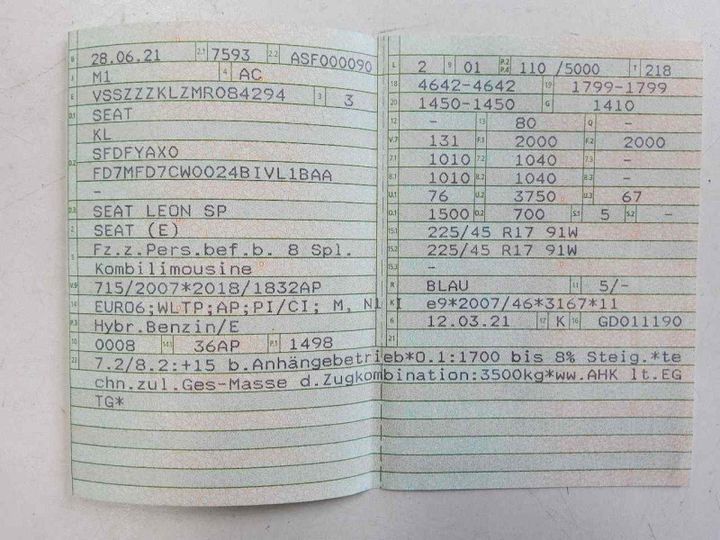 B 28.06.21 2.1 7593 2.2 ASF000090
J M1 4 AC
E VSSZZZKLZMR084294 3 3
D.1 SEAT
KL
D.2 SFDFYAX0
FD7MFD7CW0024BIVL1BAA
-
D.3 SEAT LEON SP
2 SEAT (E)
5 Fz.z.Pers.bef.b. 8 Spl.
Kombilimousine
V.9 715/2007*2018/1832AP
14 EURO6;WLTP;AP;PI/CI; M, N1 I
P.3 Hybr.Benzin/E
10 0008 14.1 36AP P.1 1498
22 7.2/8.2:+15 b.Anhängebetrieb*O.1:1700 bis 8% Steig.*te
chn.zul.Ges-Masse d.Zugkombination:3500kg*ww.AHK lt.EG
TG*
L 2 9 01 P.2 P.4 110 /5000 T 218
18 4642-4642 19 1799-1799
20 1450-1450 G 1410
12 - 13 80 Q -
V.7 131 F.1 2000 F.2 2000
7.1 1010 7.2 1040 7.3 -
8.1 1010 8.2 1040 8.3 -
U.1 76 U.2 3750 U.3 67
O.1 1500 O.2 700 S.1 5 S.2 -
15.1 225/45 R17 91W
15.2 225/45 R17 91W
15.3 -
R BLAU 11 5/-
K e9*2007/46*3167*11
6 12.03.21 17 K 16 GD011190
21